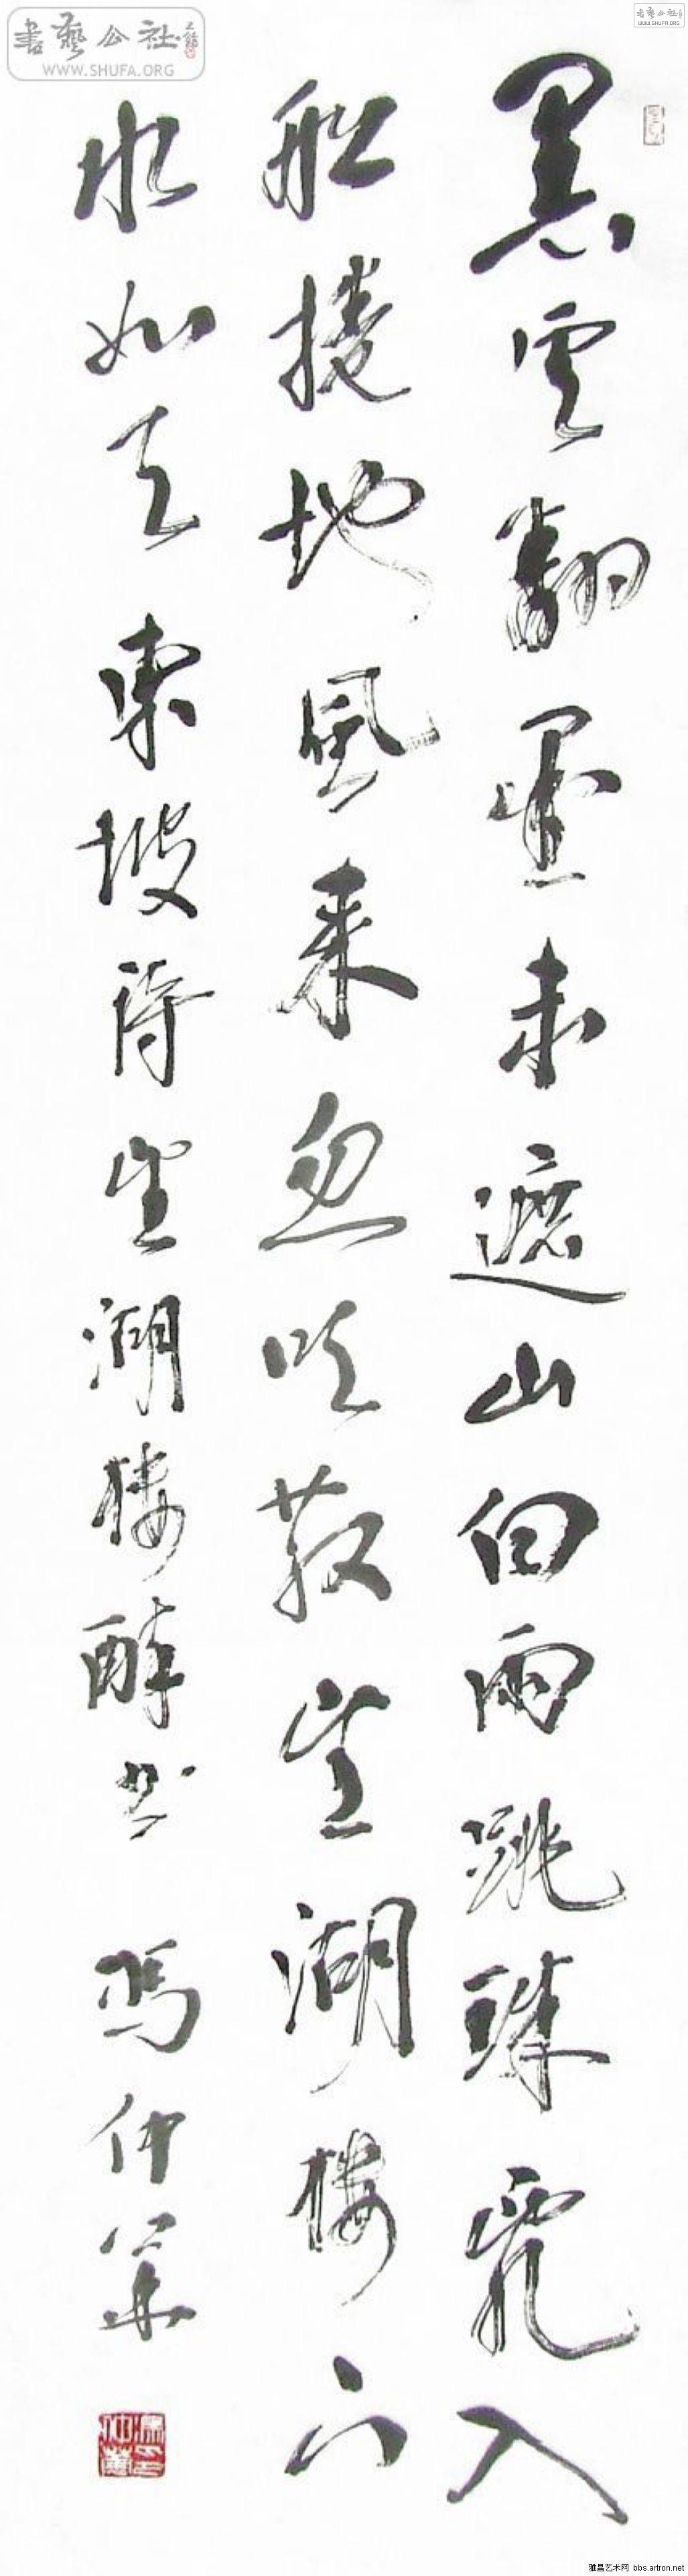 書藝公社
WWW.SHUFA.ORG
書藝公社
WWW.SHUFA.ORG
黑雲翻墨未遮山白雨跳珠亂入
船捲地風來忽吹散望湖樓下
水如天 東坡詩望湖樓醉書 馮仲
雅昌艺术网 bbs.artron.net